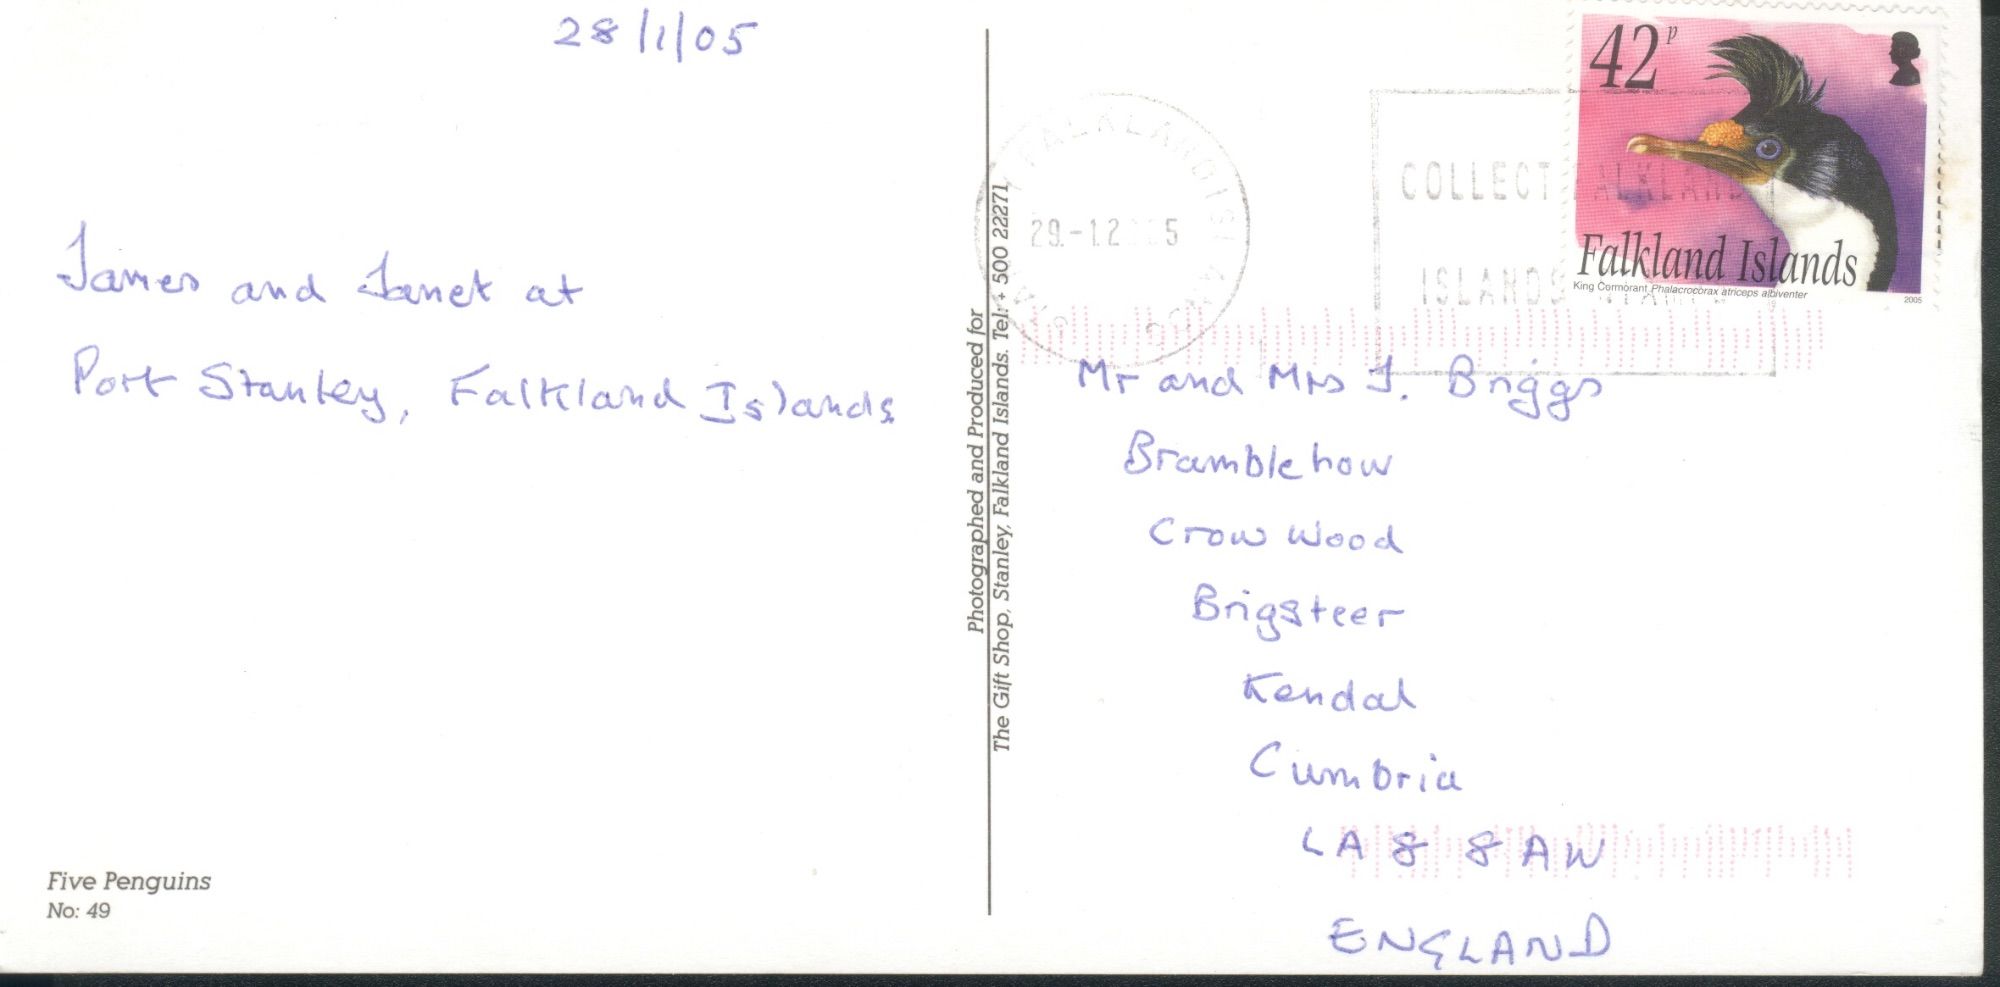 28/1/05
James and Janet at
Port Stanley, Falkland Islands
Five Penguins
No: 49
Photographed and Produced for
The Gift Shop, Stanley, Falkland Islands. Tel: + 500 22271
FALKLAND ISLANDS
COLLECT FALKLAND
ISLANDS STAMPS
42p
Falkland Islands
King Cormorant Phalacrocorax atriceps albiventer
2005
Mr and Mrs J. Briggs
Bramblehow
Crow Wood
Brigsteer
Kendal
Cumbria
LA8 8AW
ENGLAND